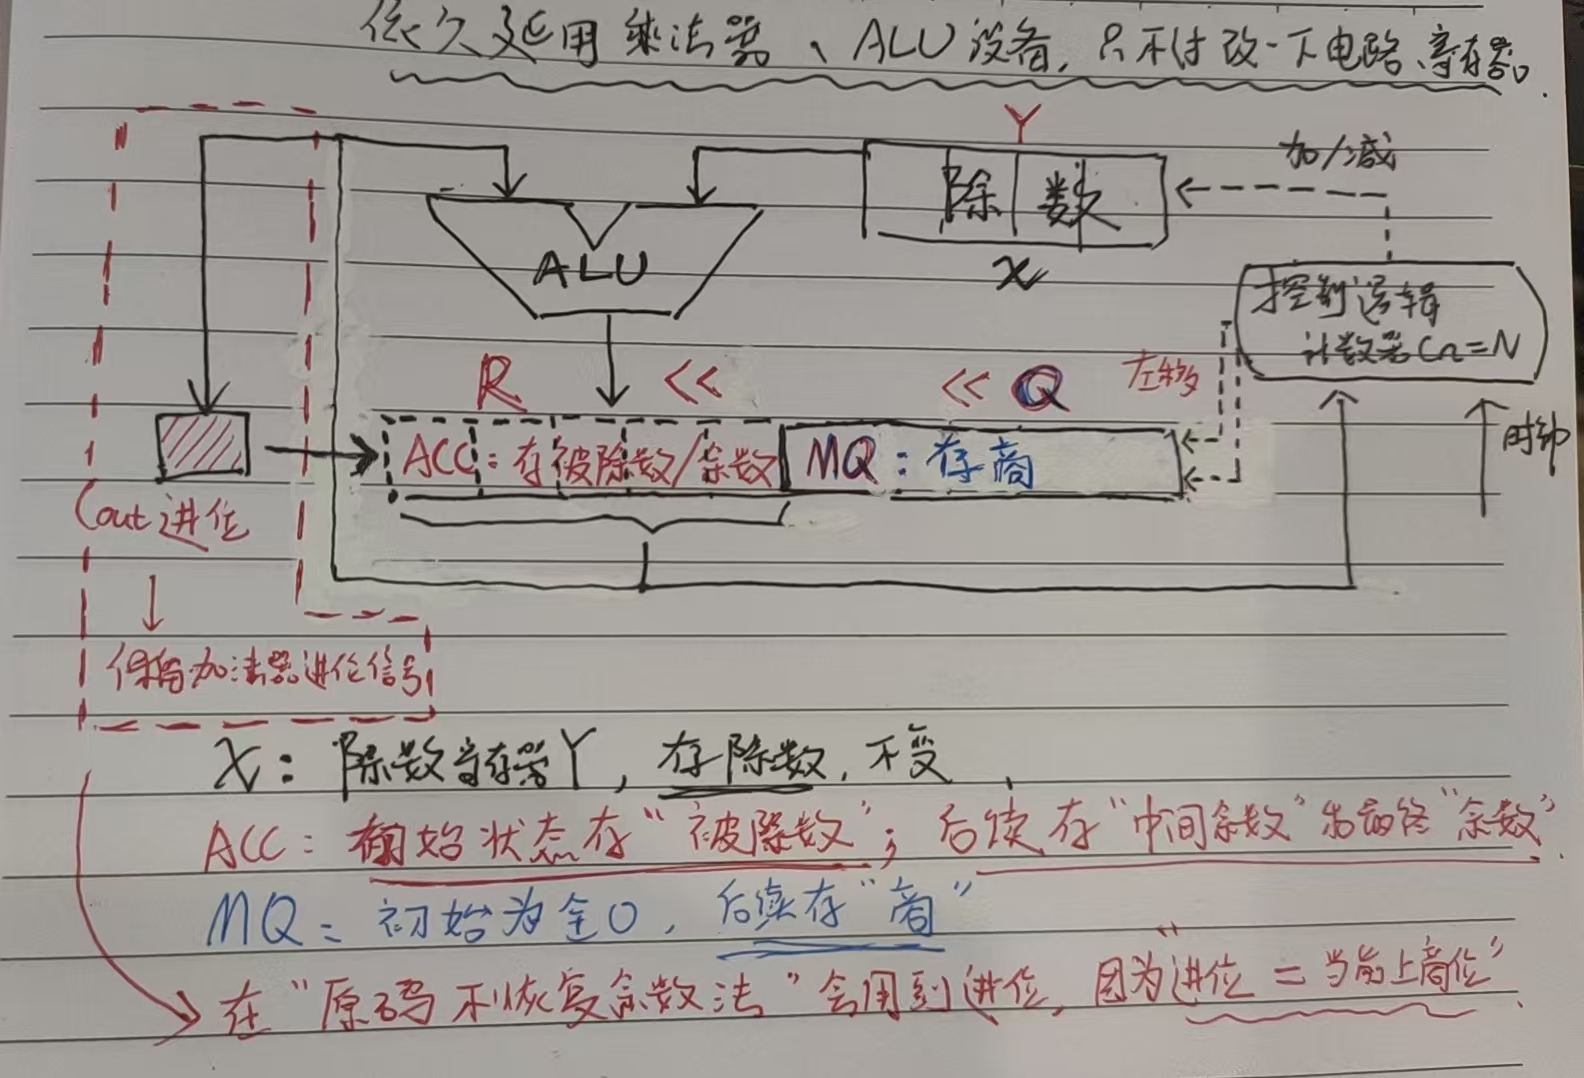 依久延用乘法器、ALU设备,只不过改一下电路、寄存器。
Y
加/减
除数
ALU
X
控制逻辑
计数器Cn=N
R << << Q 左移
ACC:存被除数/余数 MQ:存商
时钟
Cout进位
↓
保留加法器进位信号
X:除数寄存器Y,存除数,不变
ACC:初始状态存“被除数”;后续存“中间余数”当最终“余数”
MQ:初始为全0,后续存“商”
在“原码不恢复余数法”会用到进位,因为“进位=当前上商位”